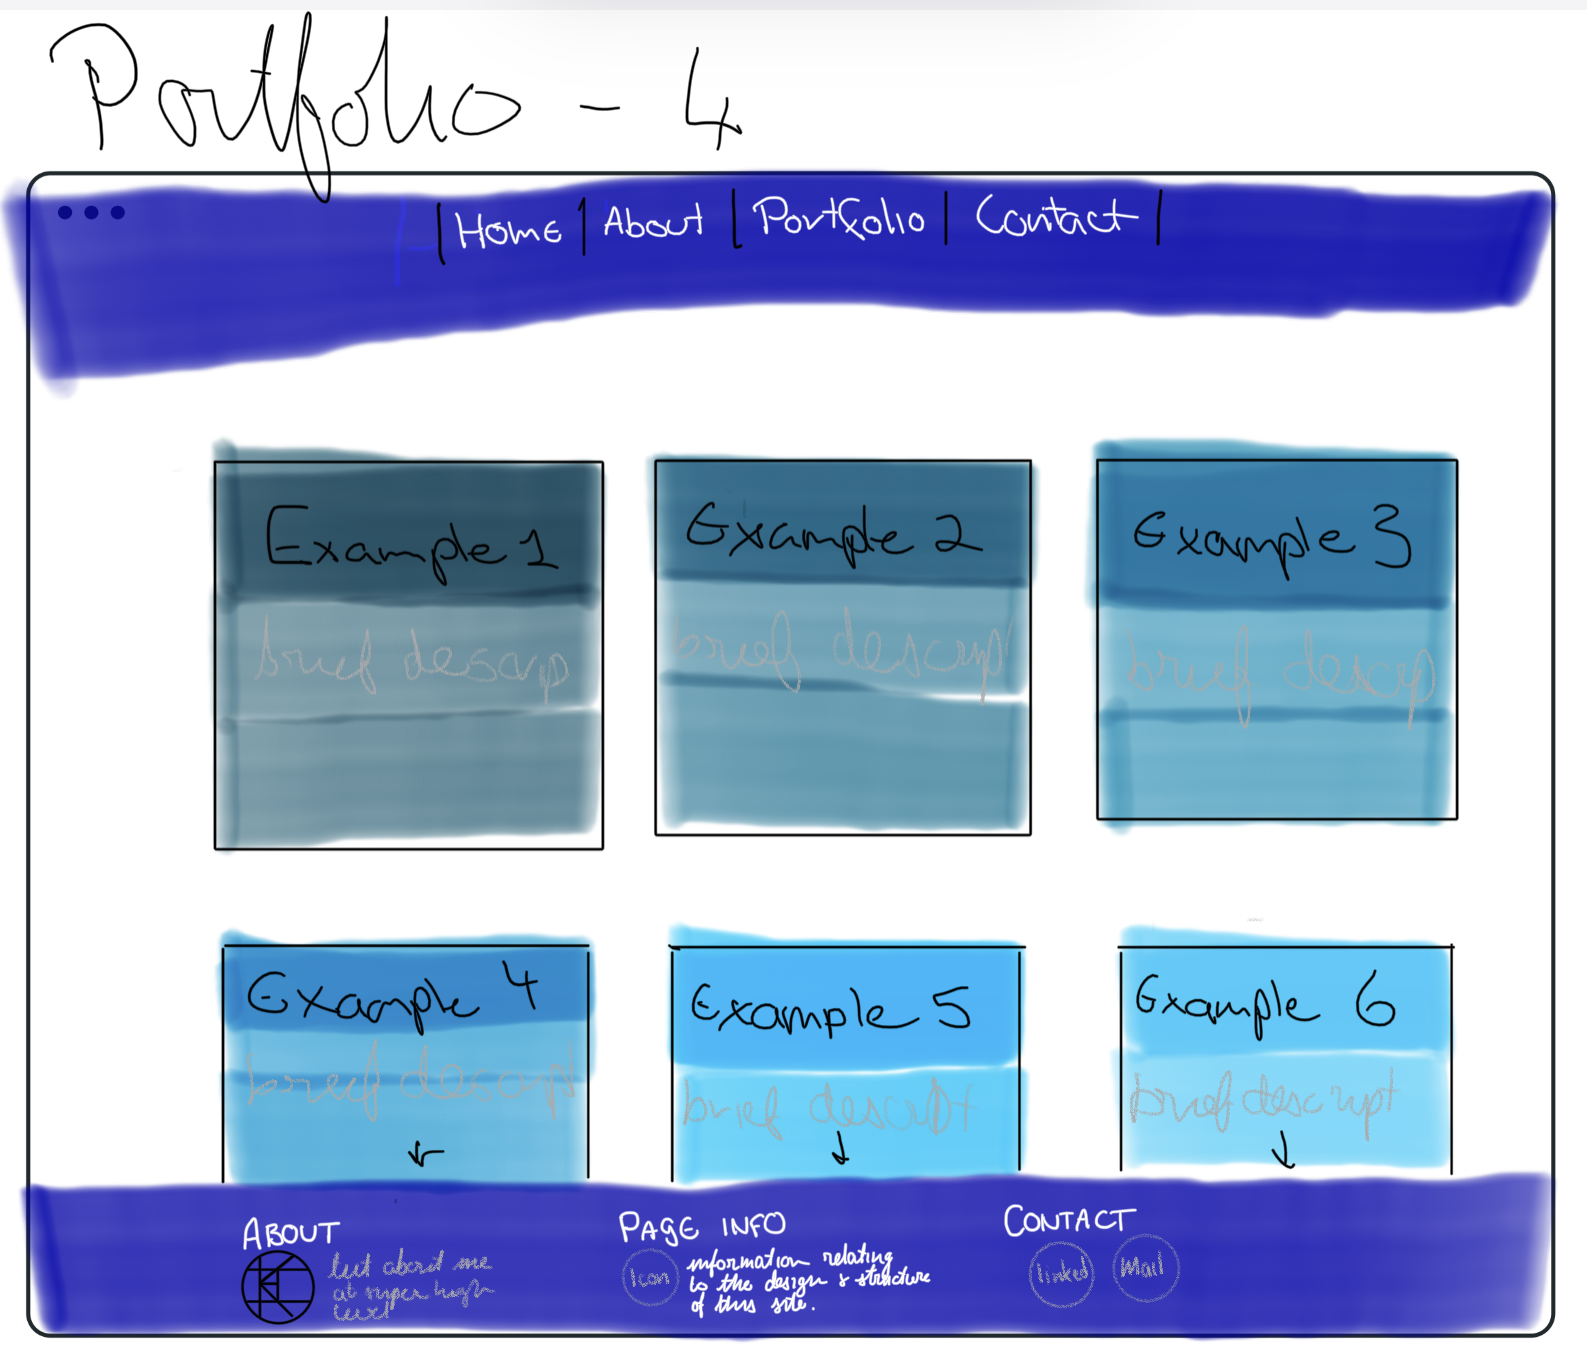 Portfolio - 4
Home About Portfolio Contact
Example 1
brief descrip
Example 2
brief descrip
Example 3
brief descrip
Example 4
brief descript
Example 5
brief descript
Example 6
brief descript
ABOUT
about me
at super high
level
PAGE INFO
Icon
information relating
to the design & structure
of this site.
CONTACT
linked
Mail